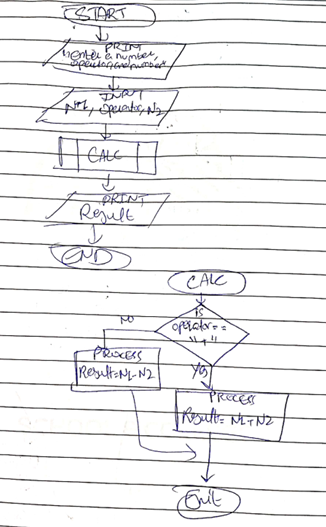 START
PRINT
"enter a number,
operator, and number"
INPUT
N1, operator, N2
CALC
PRINT
Result
END
CALC
is
operator==
"+"
NO
Yes
PROCESS
Result=N1-N2
PROCESS
Result= N1+N2
Exit